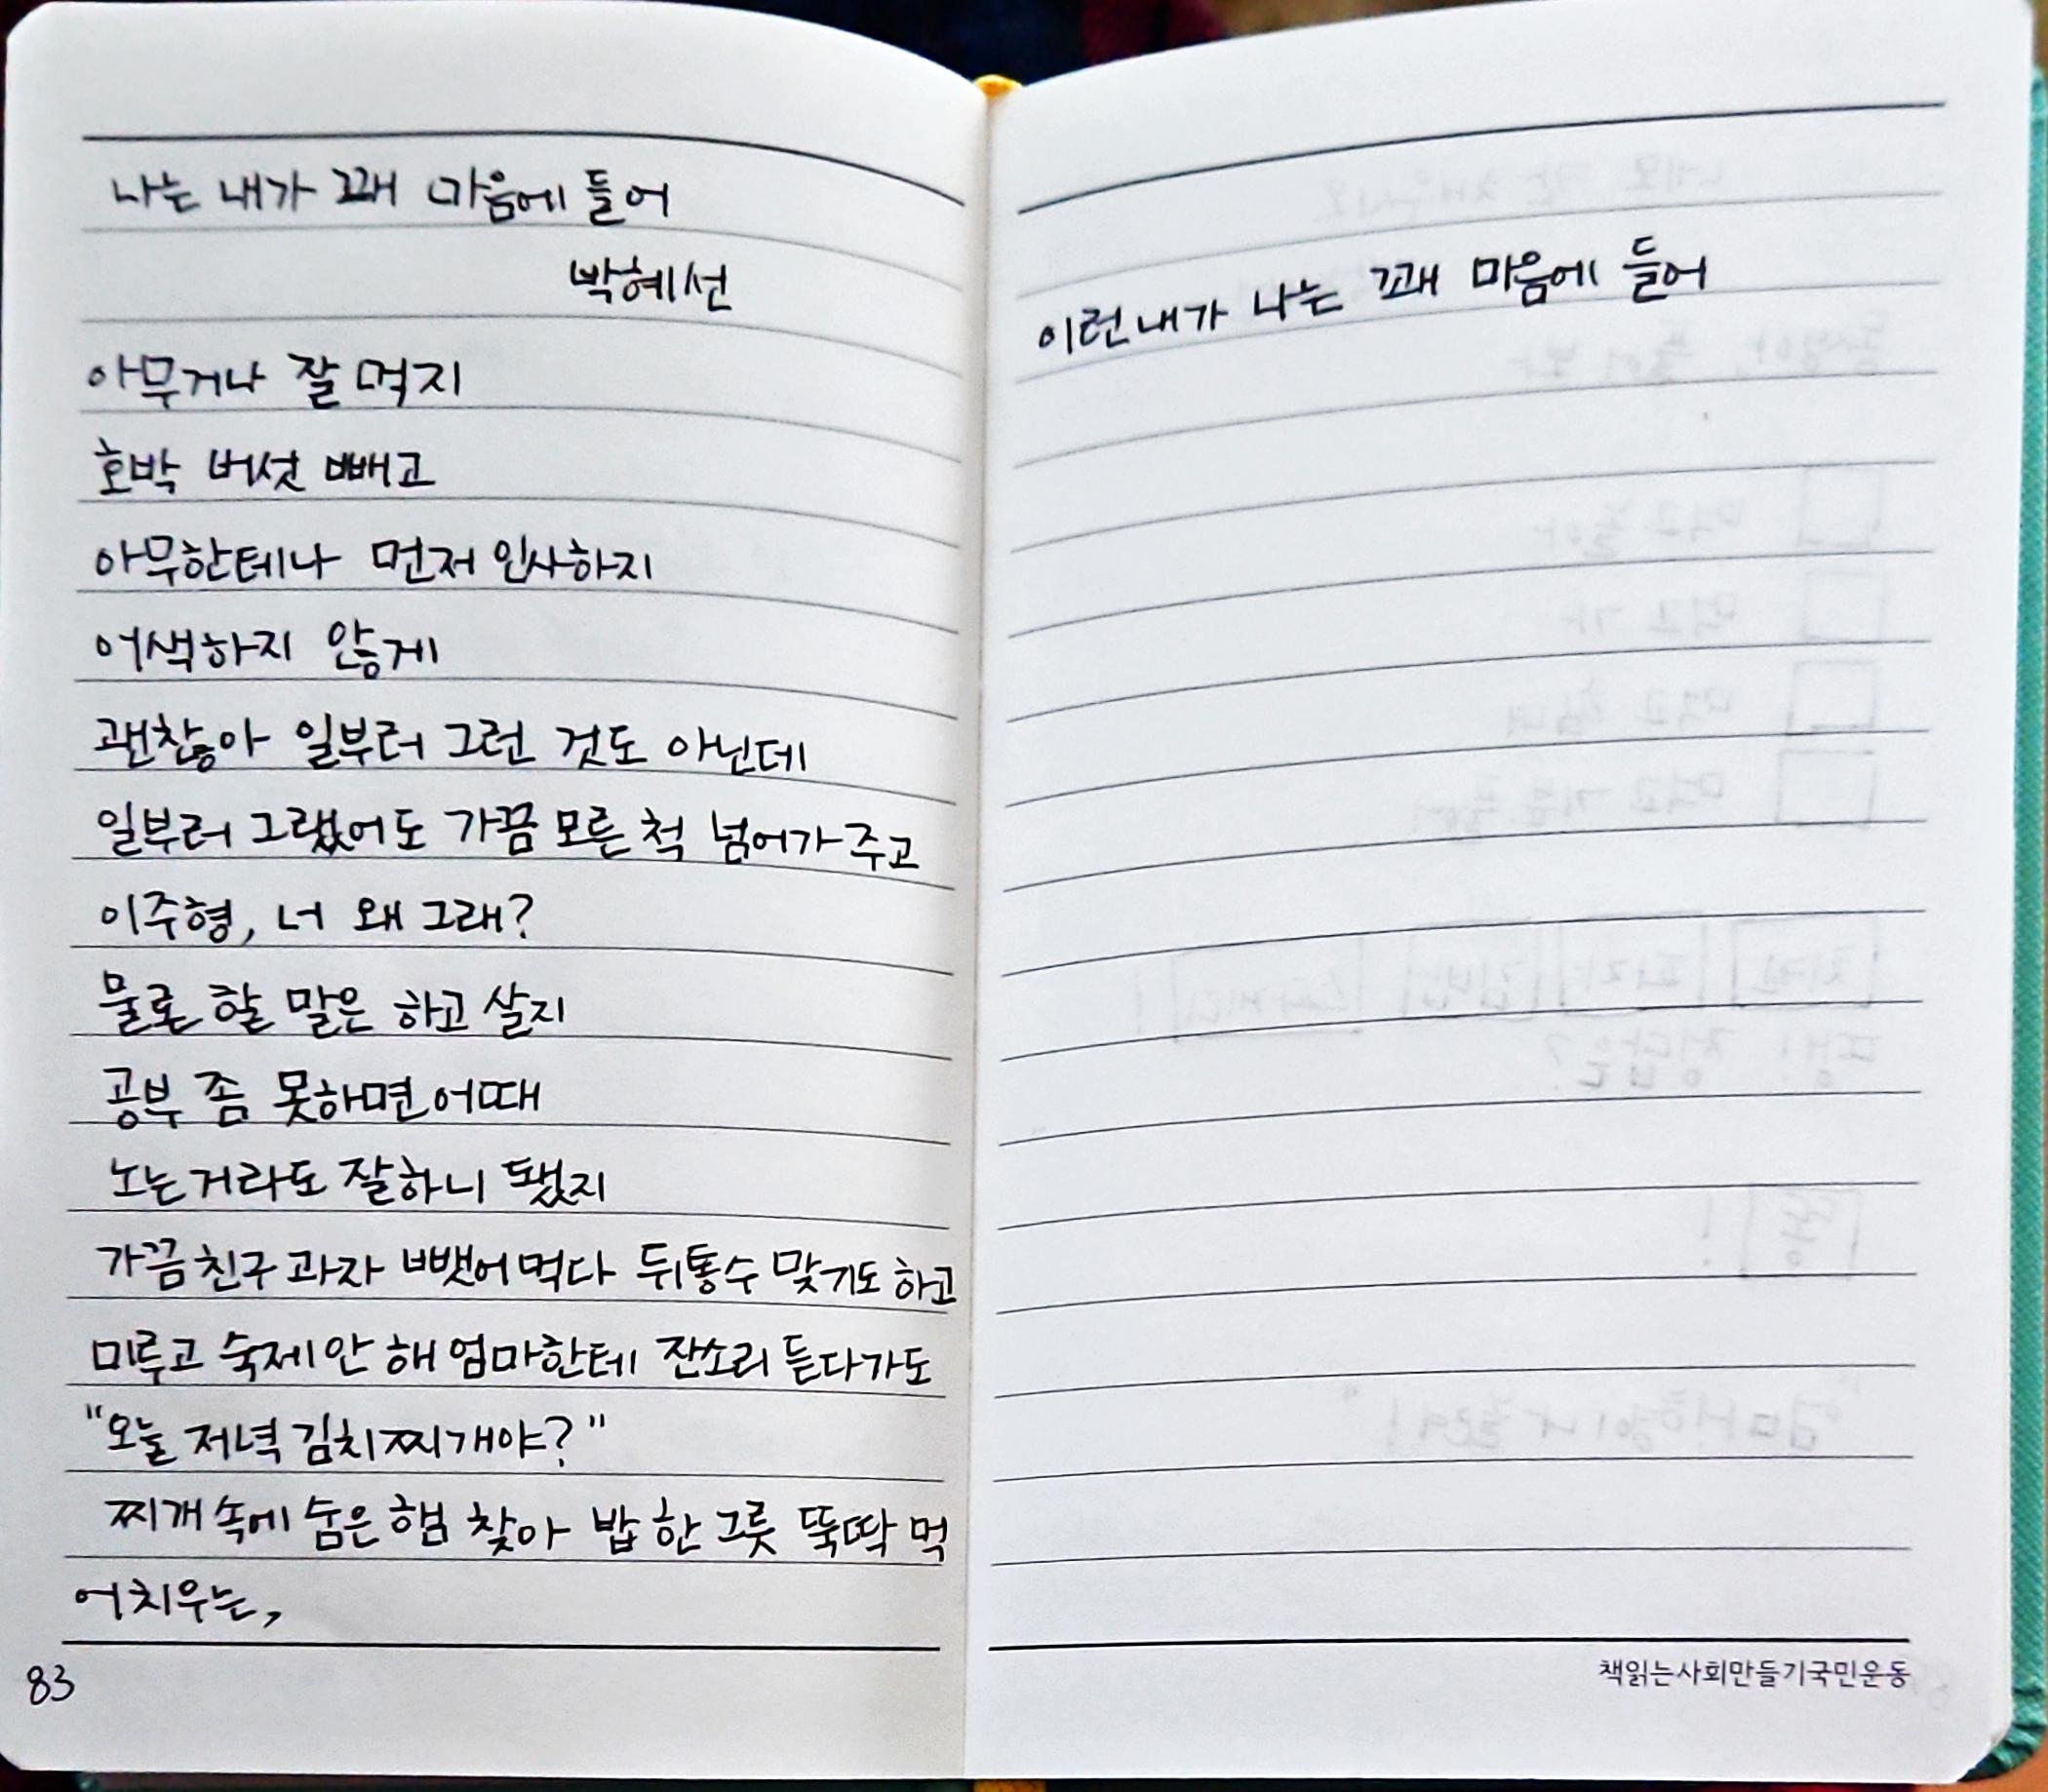 나는 내가 꽤 마음에 들어
박혜선
아무거나 잘 먹지
호박 버섯 빼고
아무한테나 먼저 인사하지
어색하지 않게
괜찮아 일부러 그런 것도 아닌데
일부러 그랬어도 가끔 모른 척 넘어가 주고
이주형, 너 왜 그래?
물론 할 말은 하고 살지
공부 좀 못하면 어때
노는 거라도 잘하니 됐지
가끔 친구 과자 뺏어 먹다 뒤통수 맞기도 하고
미루고 숙제 안 해 엄마한테 잔소리 듣다가도
"오늘 저녁 김치찌개야?"
찌개 속에 숨은 햄 찾아 밥 한 그릇 뚝딱 먹
어치우는,
83
이런 내가 나는 꽤 마음에 들어
책읽는사회만들기국민운동